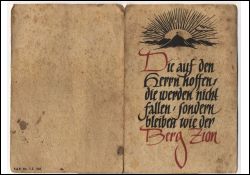 Die auf den
Herrn hoffen,
die werden nicht
fallen, sondern
bleiben wie der
Berg Zion